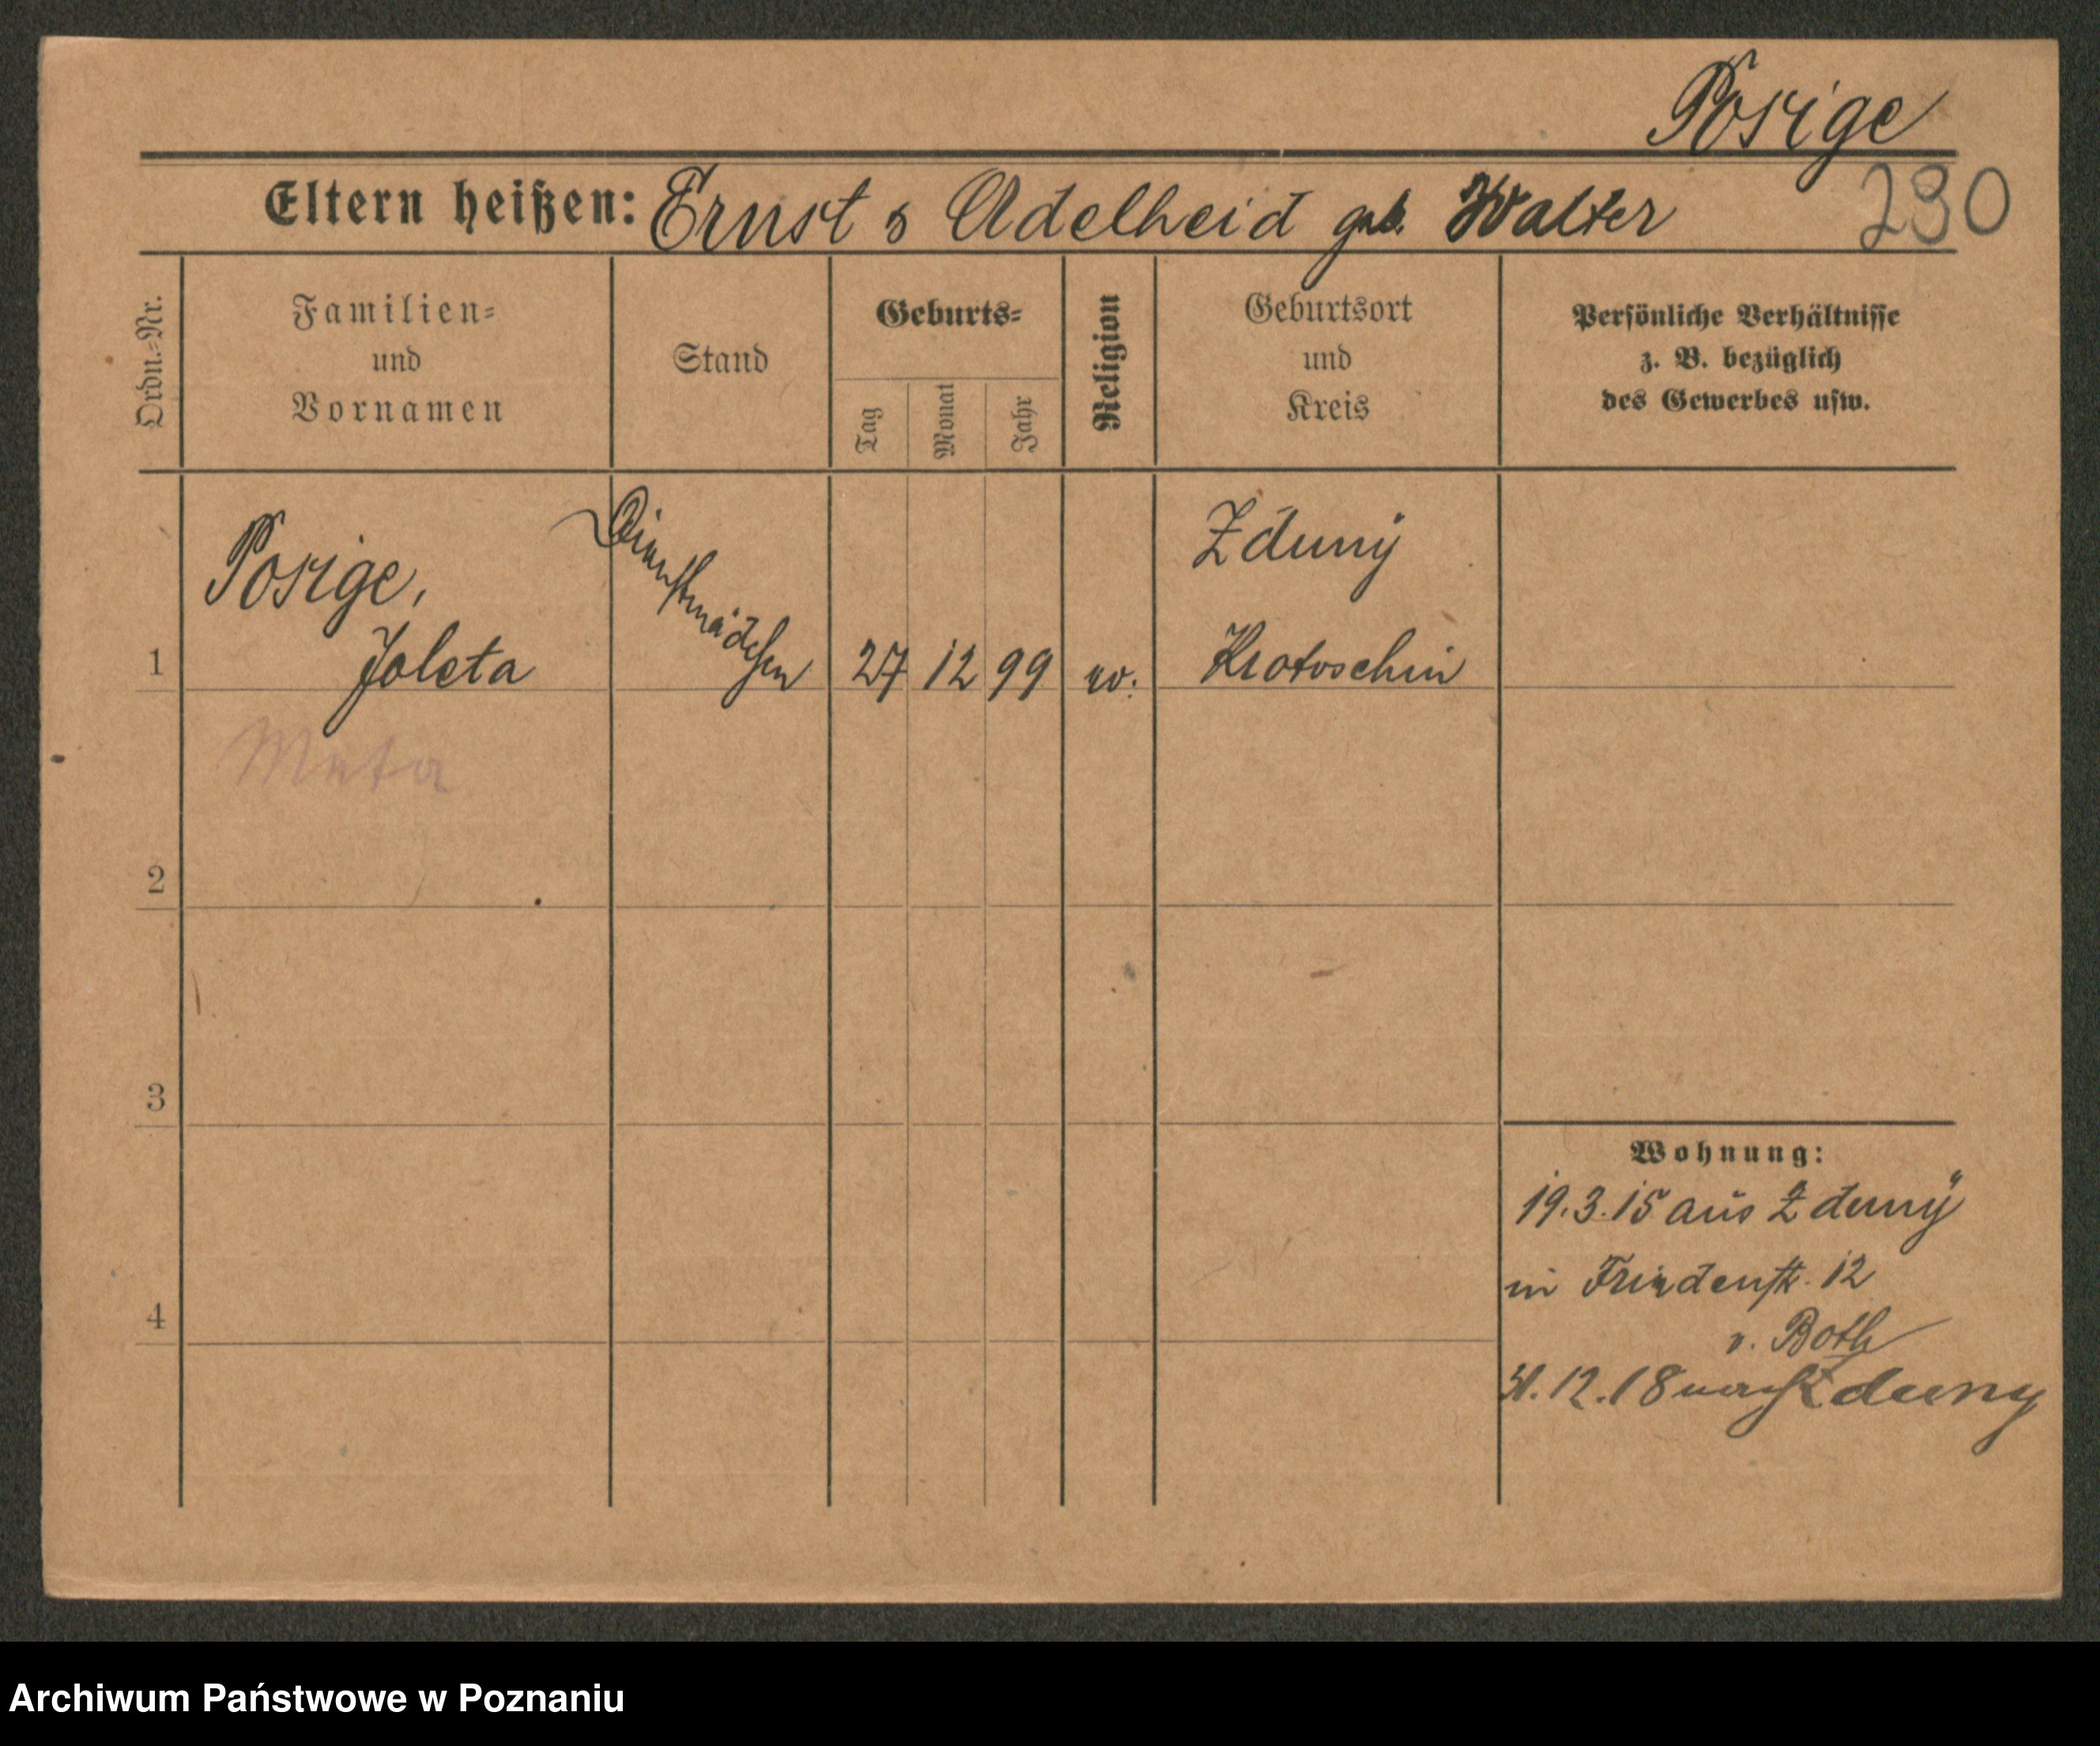 Posige
Eltern heißen: Ernst & Adelheid geb. Walter 230
Ordn.-Nr.
Familien-
und
Vornamen
Stand
Geburts-
Tag
Monat
Jahr
Religion
Geburtsort
und
Kreis
Persönliche Verhältnisse
z. B. bezüglich
des Gewerbes usw.
1
Posige,
Joleta
Dienstmädchen
27 12 99
ev.
Zduny
Krotoschin
Meta
2
3
4
Wohnung:
19.3.15 aus Zduny
in Friedenstr. 12
v. Both
31.12.18 nach Zduny
Archiwum Państwowe w Poznaniu